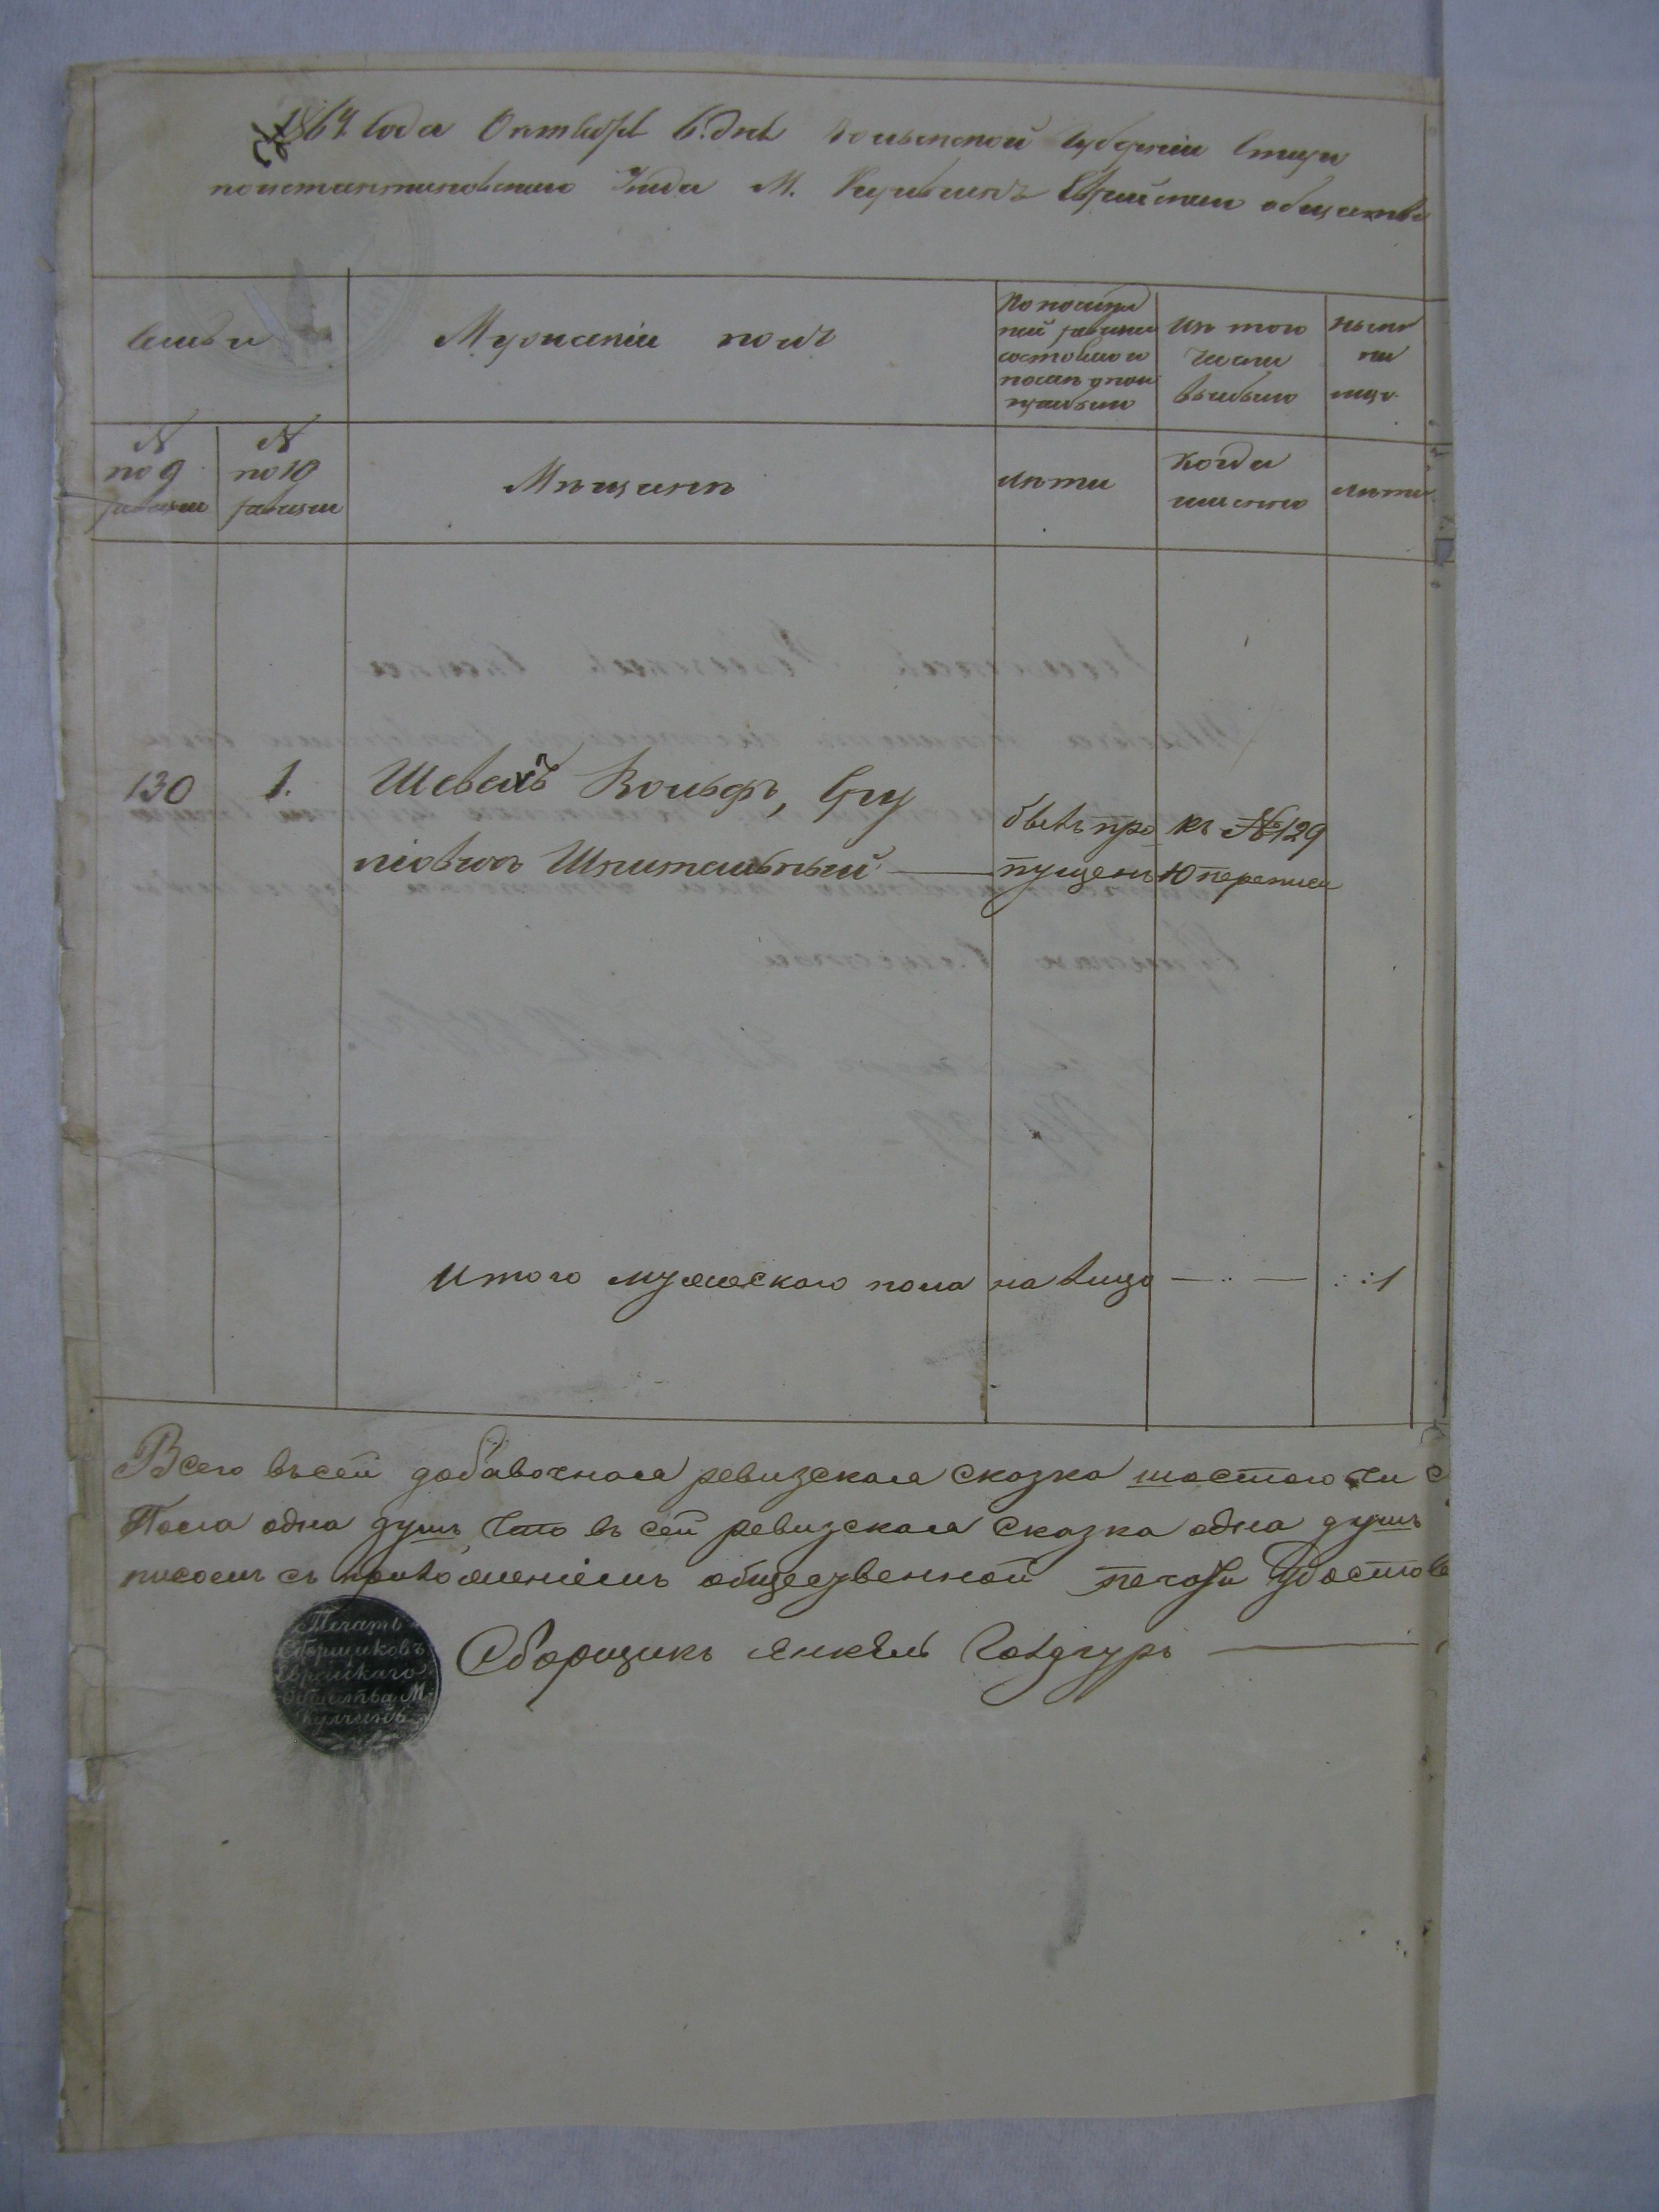 1867 года Октября 6. дня Волынской Губерніи Старо
константиновскаго Уѣзда М. Кульчинъ Еврейскаго общества
Семьи
Мужескій полъ
По послѣд
ней ревизіи
состояло и
послѣ оной
прибыло
Изъ того
числа
выбыло
Нынѣ
на
лицо
№
по 9
ревизіи
№
по 10
ревизіи
Мѣщанъ
Лѣта
Когда
именно
Лѣта
130 1. Шевахъ Вольфъ, Сру
ліовичъ Шпитальный
былъ про
пущенъ
къ № 129
10 переписи
Итого мужескаго пола на лицо 1
Всего въ сей добавочная ревизская сказка
Пола одна душъ, Что въ сей ревизская Сказка одна душъ
съ приложеніемъ общественной печати Удостов
Сборщикъ Янкель
Печать
Сборщиковъ
Еврейскаго
Общества М.
Кульчинъ